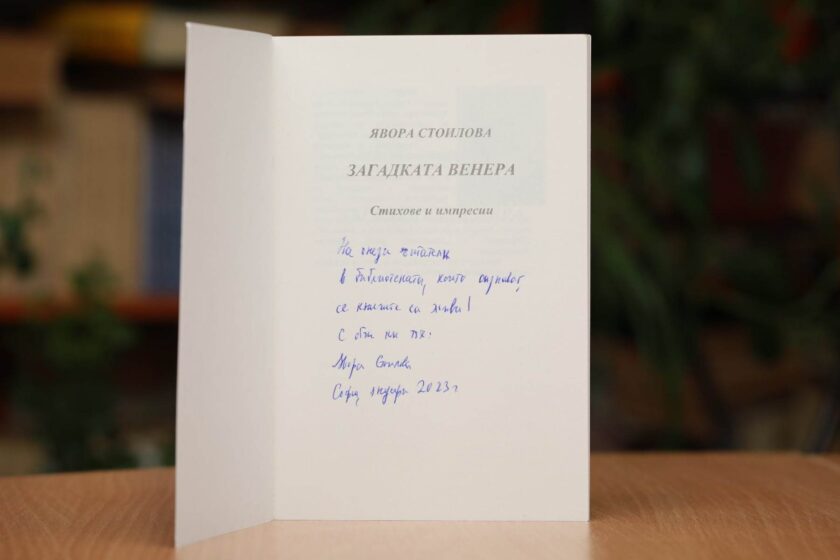 ЯВОРА СТОИЛОВА
ЗАГАДКАТА ВЕНЕРА
Стихове и импресии
На онези читатели
в библиотеката, които
се книгите са живи!
С обич
Явора Стоилова
София, януари 2023 г.